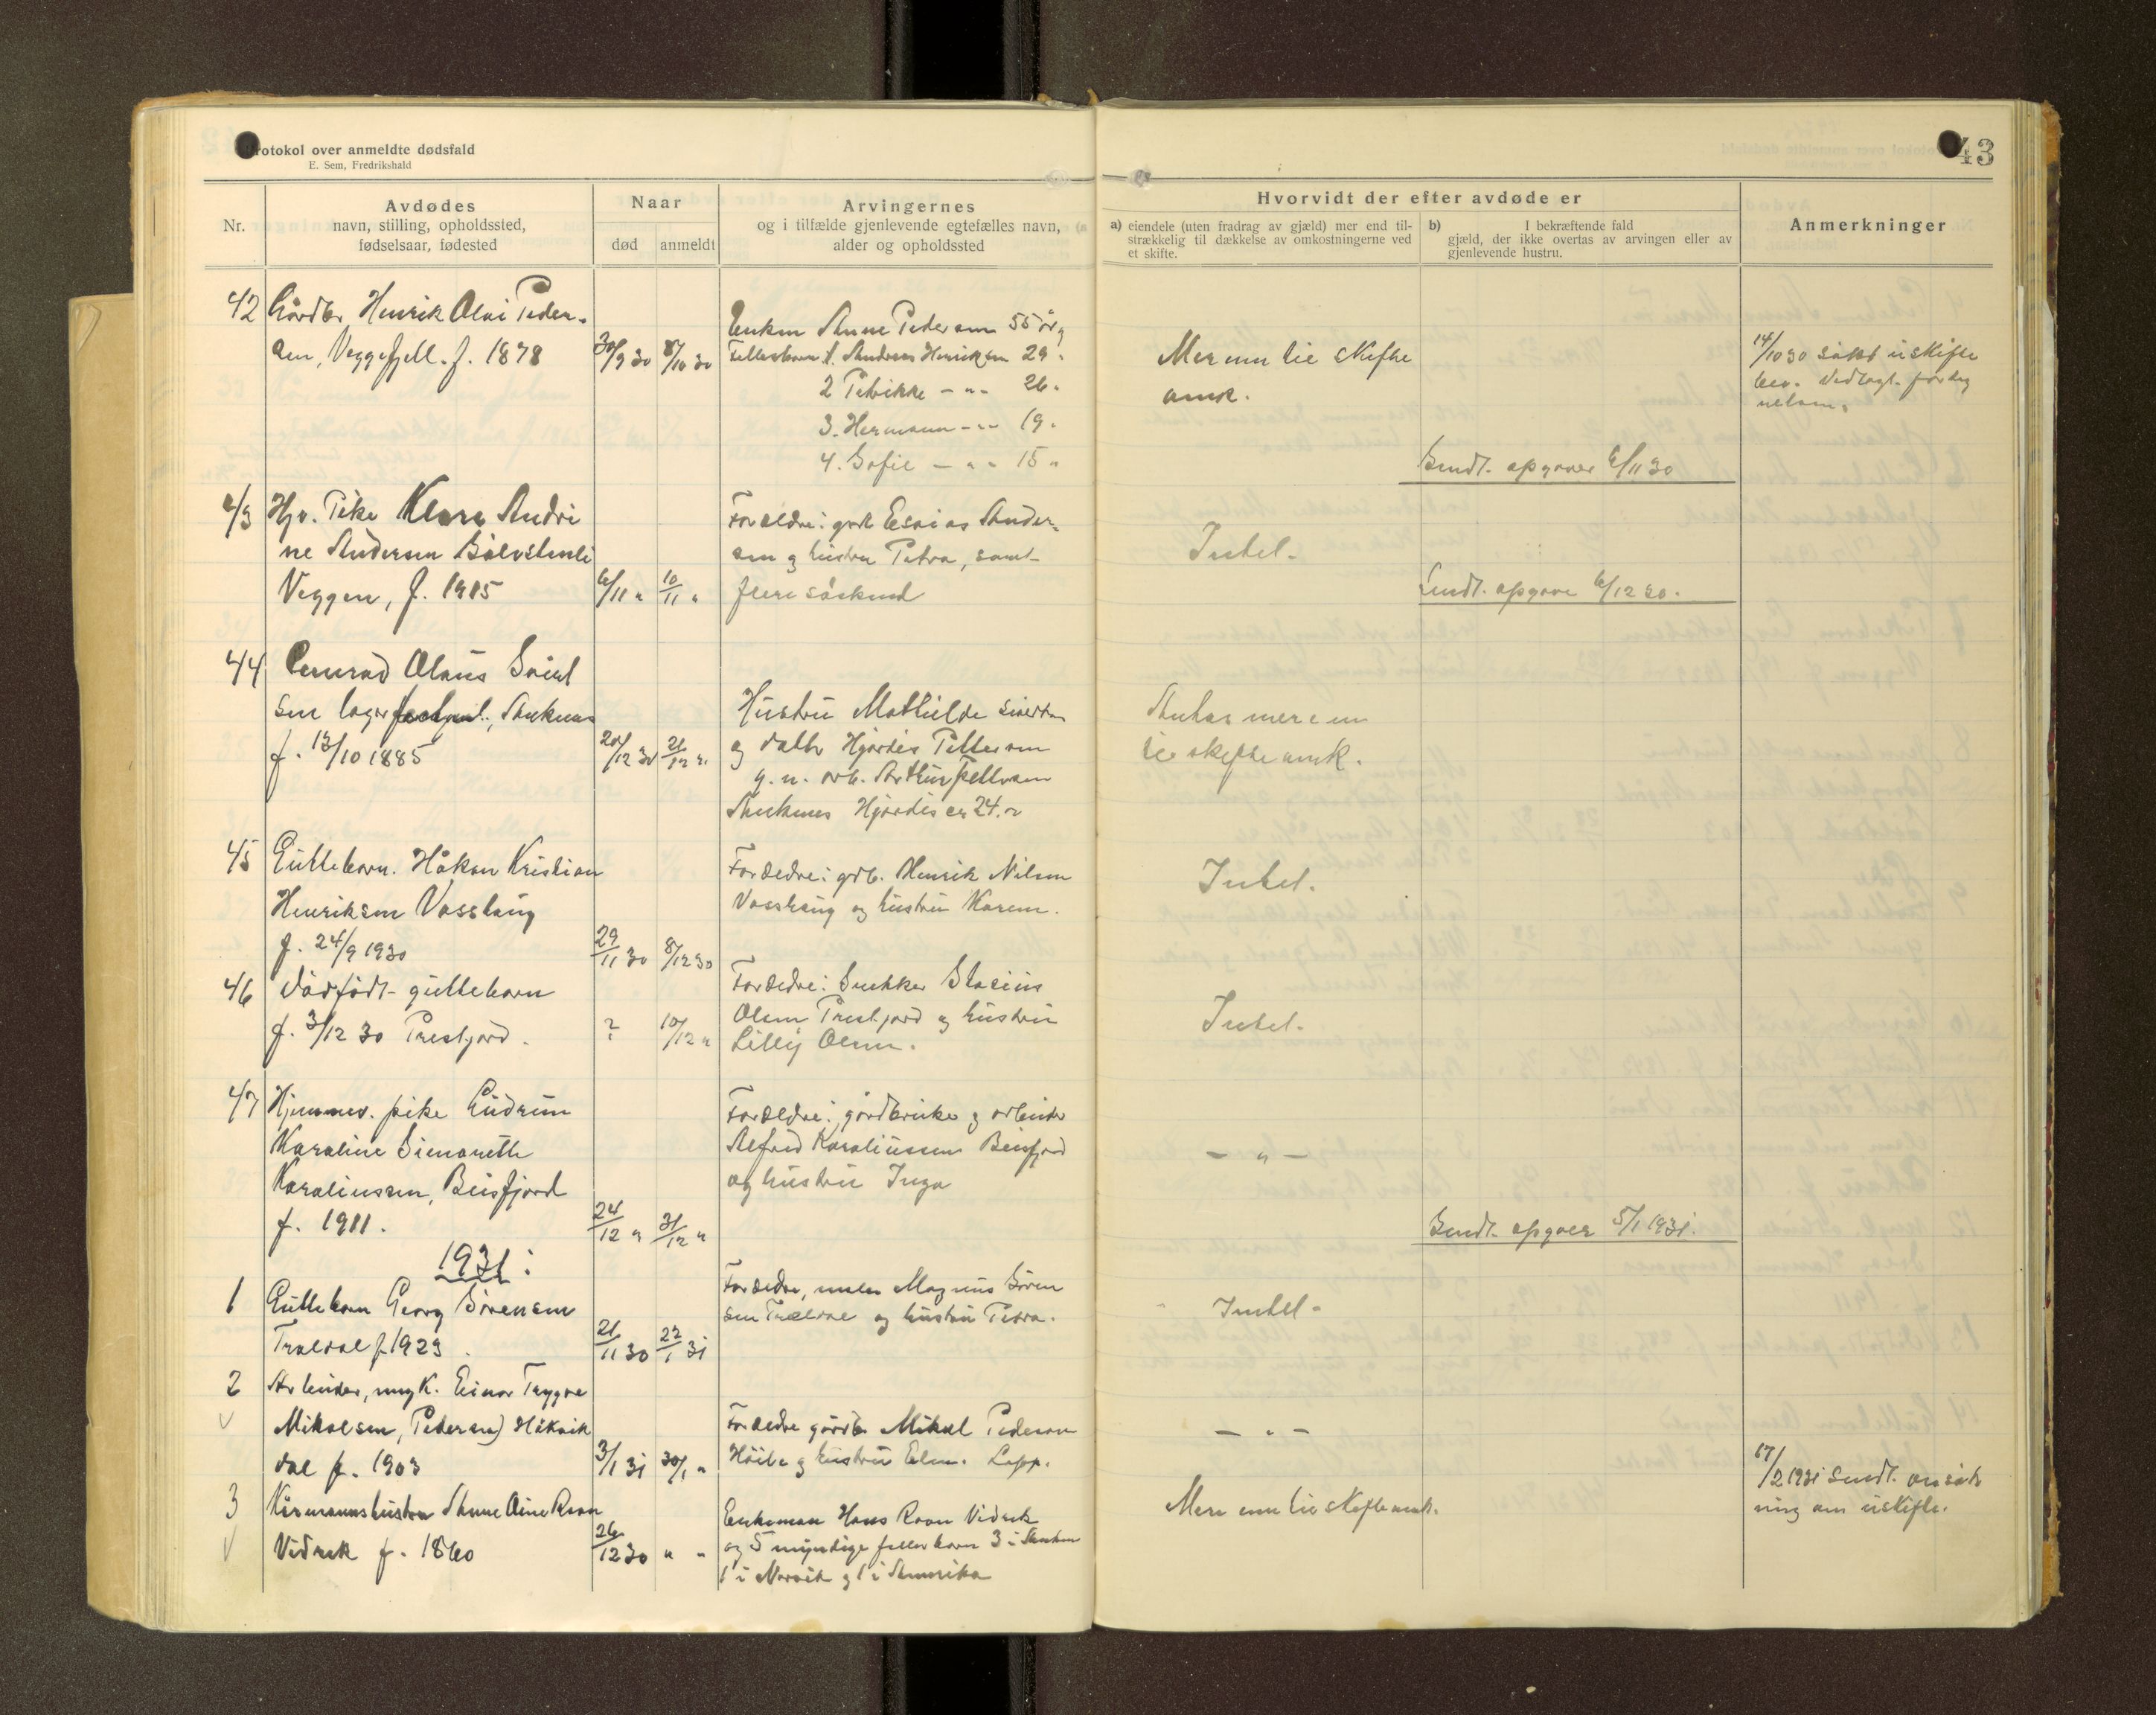 Protokol over anmeldte dødsfald
E. Sem, Fredrikshald
43
Nr.
Avdødes
navn, stilling, opholdssted,
fødselsaar, fødested
Naar
død
anmeldt
Arvingernes
og i tilfælde gjenlevende egtefælles navn,
alder og opholdssted
Hvorvidt der efter avdøde er
a) eiendele (uten fradrag av gjæld) mer end til-
strækkelig til dækkelse av omkostningerne ved
et skifte.
b) I bekræftende fald
gjæld, der ikke overtas av arvingen eller av
gjenlevende hustru.
Anmerkninger
42 Gårdbr Henrik Olai Peder-
sen, Veggefjell. f. 1878
30/9 30 8/10 30
Enken Anne Pedersen 55 år,
Fellesbarn 1. Andreas Henriksen 29.
2 Petrikke - " - 26.
3. Hermann - " - 19.
4. Sofie - " - 15 "
Mer enn til skifte
omk.
14/10 30 søkt uskifte
bev. Vedlagt
Sendt. opgaver 6/11 30
43 Hjv. Pike Klara Andri
ne Andersen
Veggen, f. 1915
6/11 " 10/11 "
Foreldre: grdb Esaias Ander-
sen og hustru Petra, samt
flere søskend
Intet.
Sendt. opgave 6/12 30.
44 Conrad Olaus Sivert
sen lager Ankenes
f. 13/10 1885
20/12 30 21/12 "
Hustru Mathilde Sivertsen
og datter Hjørdis Pettersen
g. m. arb. Arthur Pettersen
Ankenes Hjørdis er 24.
Antas mer enn
til skifte omk.
45 Guttebarn. Håkon Kristian
Henriksen Vasshaug
f. 24/9 1930
29/11 30 8/12 30
Foreldre: grdb. Henrik Nilsen
Vasshaug og hustru Karen.
Intet.
46 Dødfødt guttebarn
f. 3/12 30 Prestjord.
? 10/12 "
Foreldre: Snekker Stasius
Olsen Prestjord og hustru
Lilly Olsen.
Intet.
47 Hjemmev. pike Gudrun
Karoline Simonette
Karoliussen, Beisfjord
f. 1911.
24/12 " 31/12 "
Foreldre: gårdbruker og arbeider
Alfred Karoliussen Beisfjord
og hustru Inga
- " -
Sendt opgaver 5/1 1931.
1931:
1 Guttebarn Georg Sørensen
Traldal f 1923
21/11 30 22/1 31
Foreldre, maler Magnus Søren
sen Traldal og hustru Petra.
Intet.
2 Arbeider, ung K. Einar Trygve
Mikalsen, Pedersen) Håkvik
dal f. 1903
3/1 31 30/1 "
Foreldre gårdb Mikal Pedersen
og hustru Elen. Lapp.
- " -
3 Kårmannshustru Anne Oline Raan
Vidrek f. 1860
26/12 30 " "
Enkeman Hans Raan Vidrek
og 5 myndige fellesbarn 3 i Anken
1 i Narvik og 1 i Amerika
Mere enn til skifteomk.
17/2 1931 Sendt. ansøk
ning om uskifte.